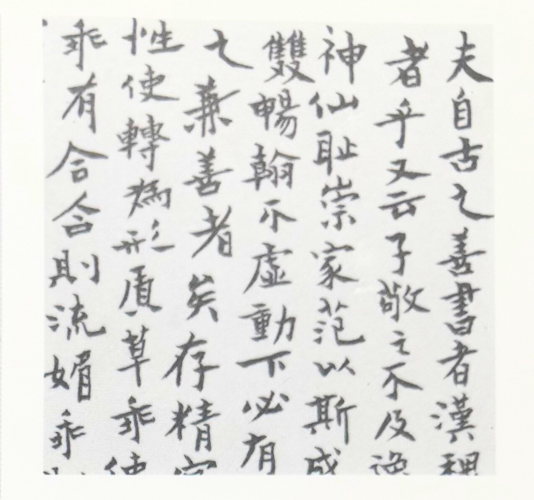 夫自古之善書者漢
者乎又云子敬之不及逸
神仙耻崇家范以斯成
雙暢翰不虚動下必有
之兼善者矣存精
性使轉為形質草乖使
乖有合合則流媚乖